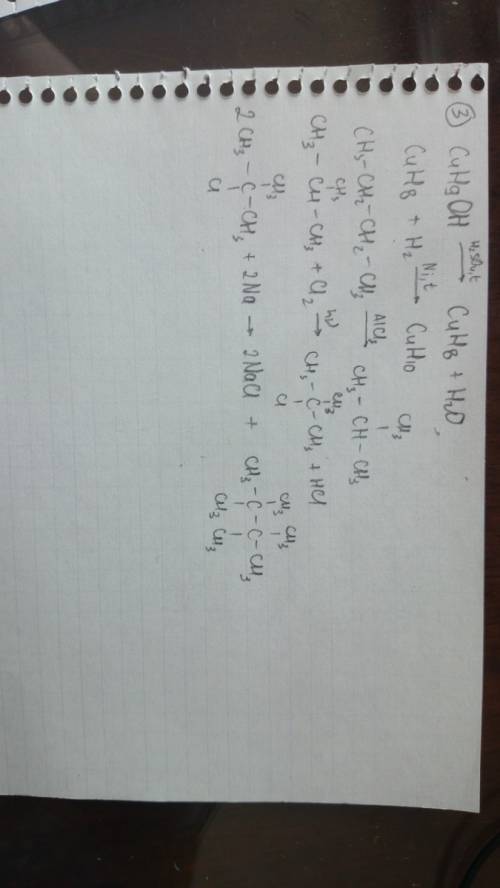 ③ C4H9OH H2SO4, t → C4H8 + H2O
C4H8 + H2 Ni, t → C4H10
CH3-CH2-CH2-CH3 AlCl3 → CH3-CH-CH3
CH3
CH3-CH-CH3 + Cl2 hν → CH3-C-CH3 + HCl
CH3
CH3
Cl
2CH3-C-CH3 + 2Na → 2NaCl + CH3-C-C-CH3
CH3
Cl
CH3 CH3
CH3 CH3